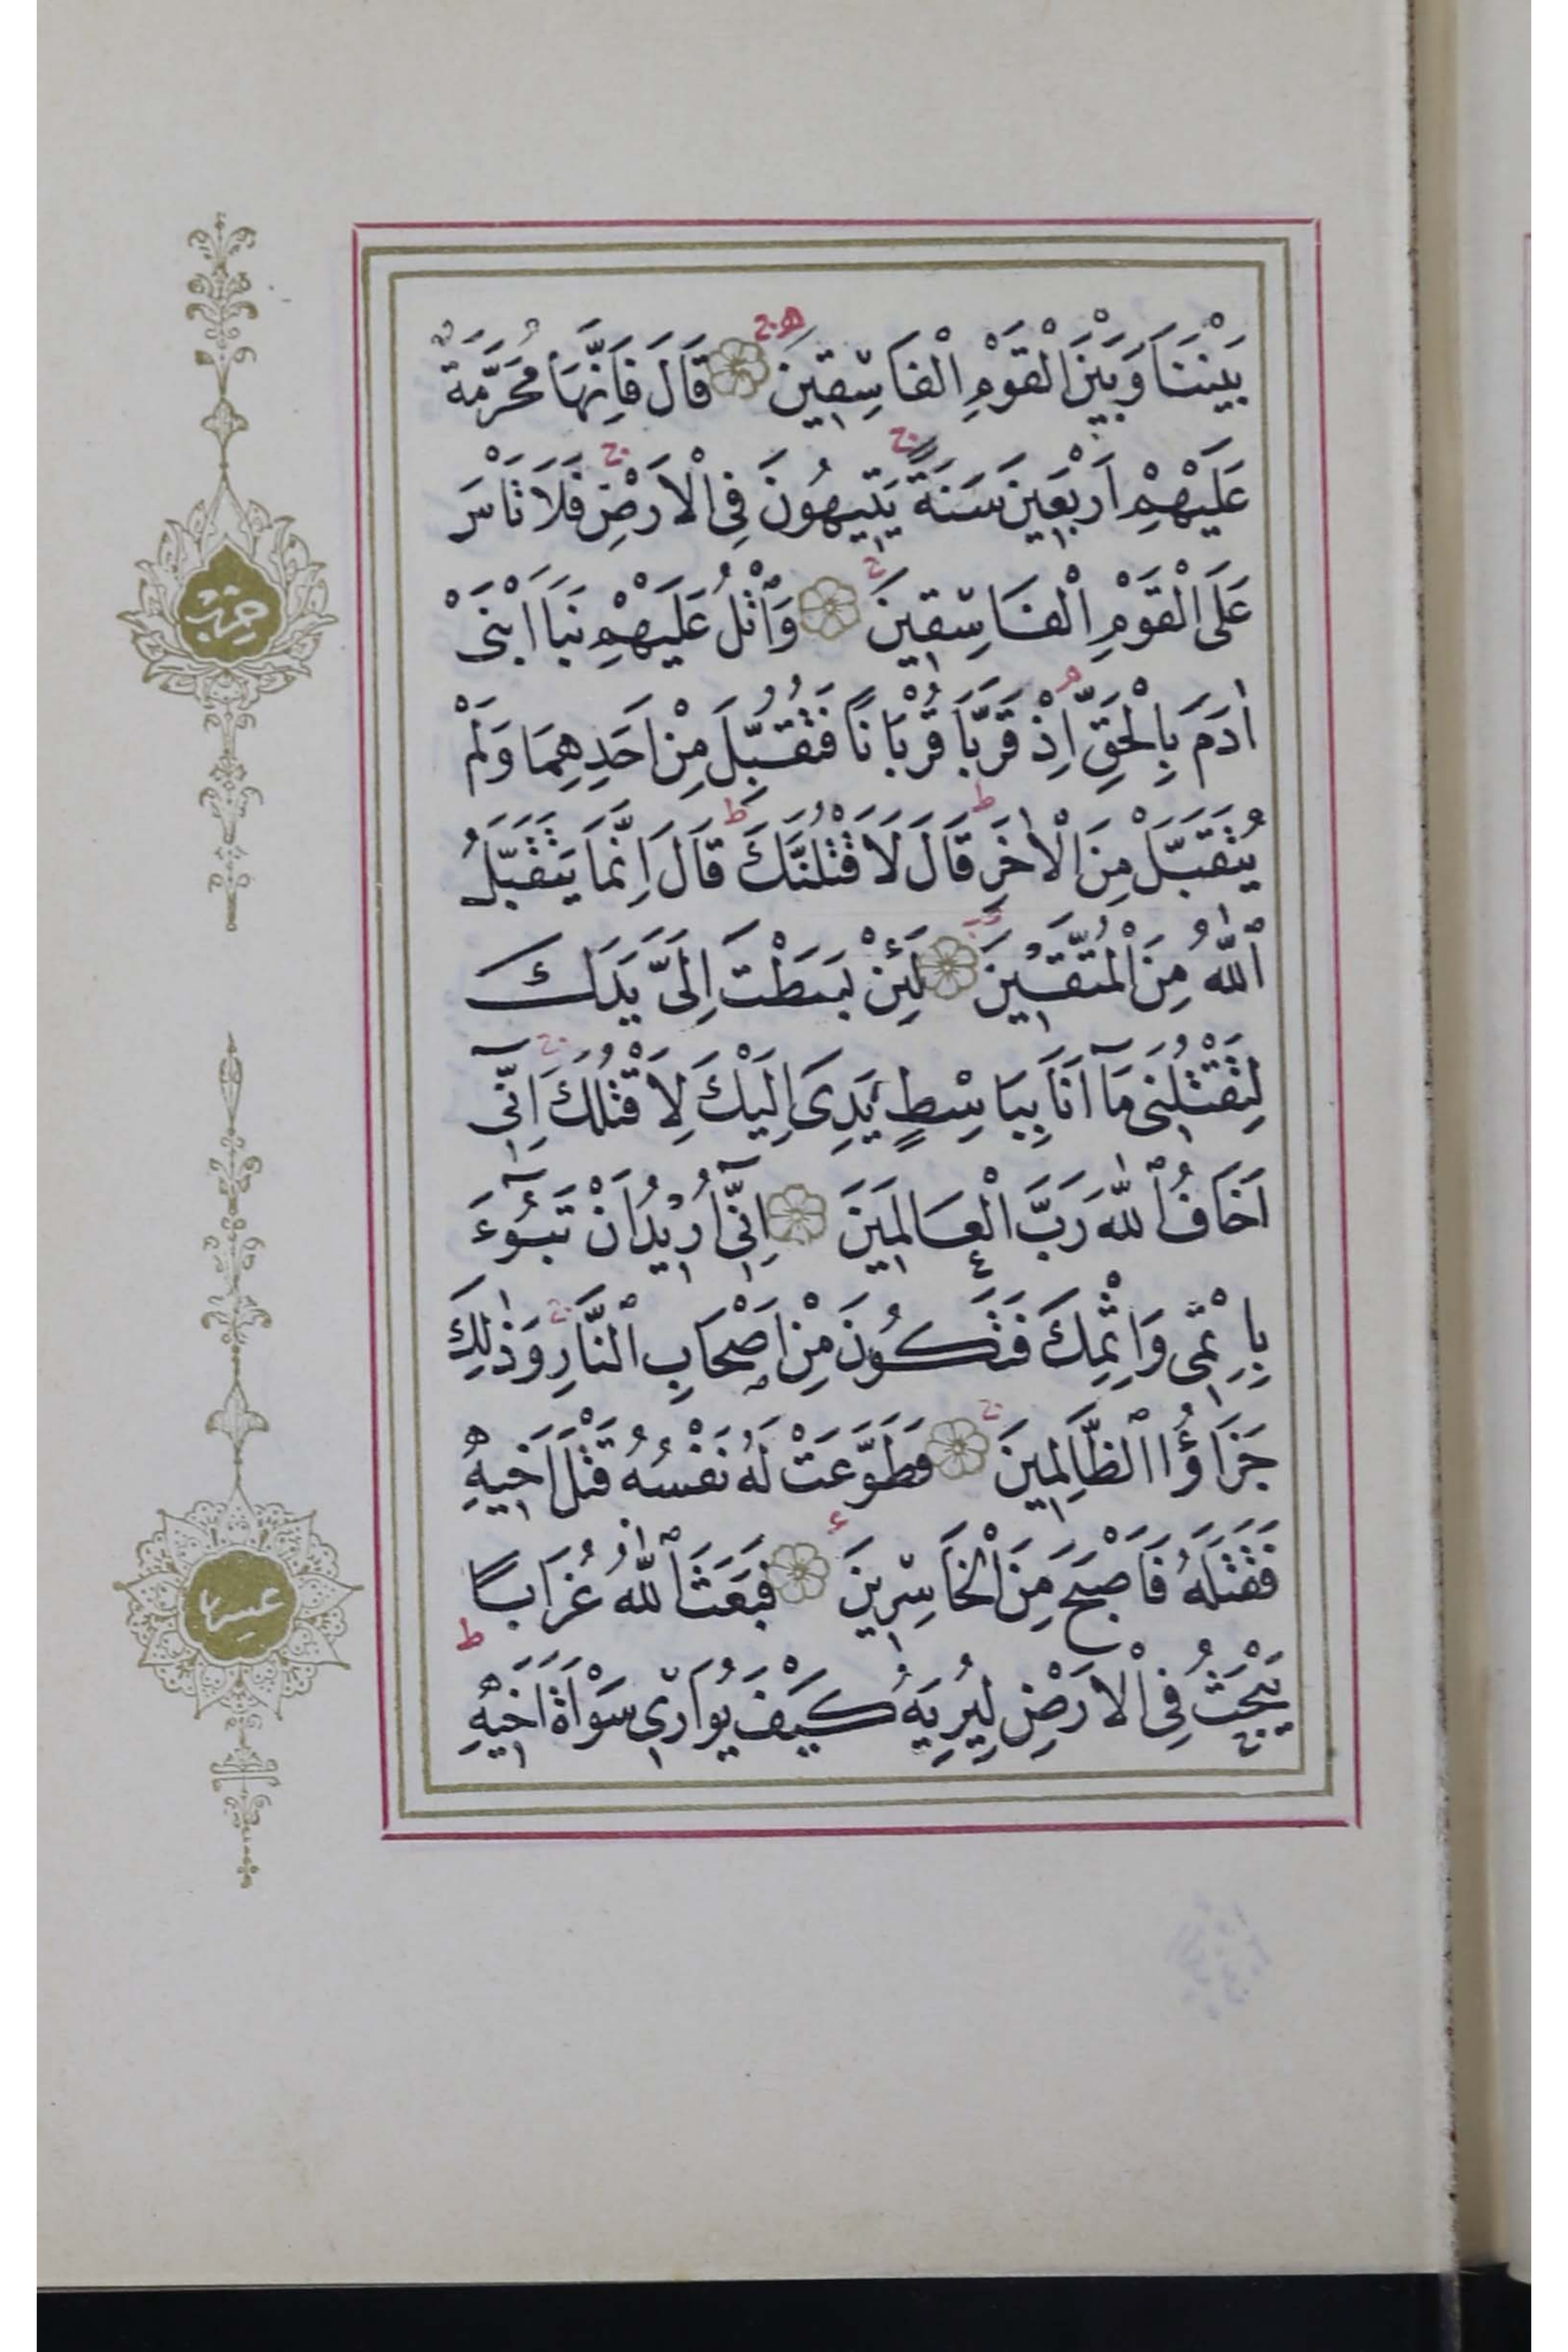 بَيْنَنَا وَبَيْنَ الْقَوْمِ الْفَاسِقِينَ قَالَ فَاِنَّهَا مُحَرَّمَةٌ
عَلَيْهِمْ اَرْبَعِينَ سَنَةً يَتِيهُونَ فِى الْاَرْضِ فَلَا تَاْسَ
عَلَى الْقَوْمِ الْفَاسِقِينَ وَاتْلُ عَلَيْهِمْ نَبَاَ ابْنَىْ
اٰدَمَ بِالْحَقِّ اِذْ قَرَّبَا قُرْبَانًا فَتُقُبِّلَ مِنْ اَحَدِهِمَا وَلَمْ
يُتَقَبَّلْ مِنَ الْاٰخَرِ قَالَ لَاَقْتُلَنَّكَ قَالَ اِنَّمَا يَتَقَبَّلُ
اللّٰهُ مِنَ الْمُتَّقِينَ لَئِنْ بَسَطْتَ اِلَىَّ يَدَكَ
لِتَقْتُلَنِى مَآ اَنَا بِبَاسِطٍ يَدِىَ اِلَيْكَ لِاَقْتُلَكَ اِنِّىٓ
اَخَافُ اللّٰهَ رَبَّ الْعَالَمِينَ اِنِّىٓ اُرِيدُ اَنْ تَبُٓوءَ
بِاِثْمِى وَاِثْمِكَ فَتَكُونَ مِنْ اَصْحَابِ النَّارِ وَذٰلِكَ
جَزَاؤُا الظَّالِمِينَ فَطَوَّعَتْ لَهُ نَفْسُهُ قَتْلَ اَخِيهِ
فَقَتَلَهُ فَاَصْبَحَ مِنَ الْخَاسِرِينَ فَبَعَثَ اللّٰهُ غُرَابًا
يَبْحَثُ فِى الْاَرْضِ لِيُرِيَهُ كَيْفَ يُوَارِى سَوْاَةَ اَخِيهِ